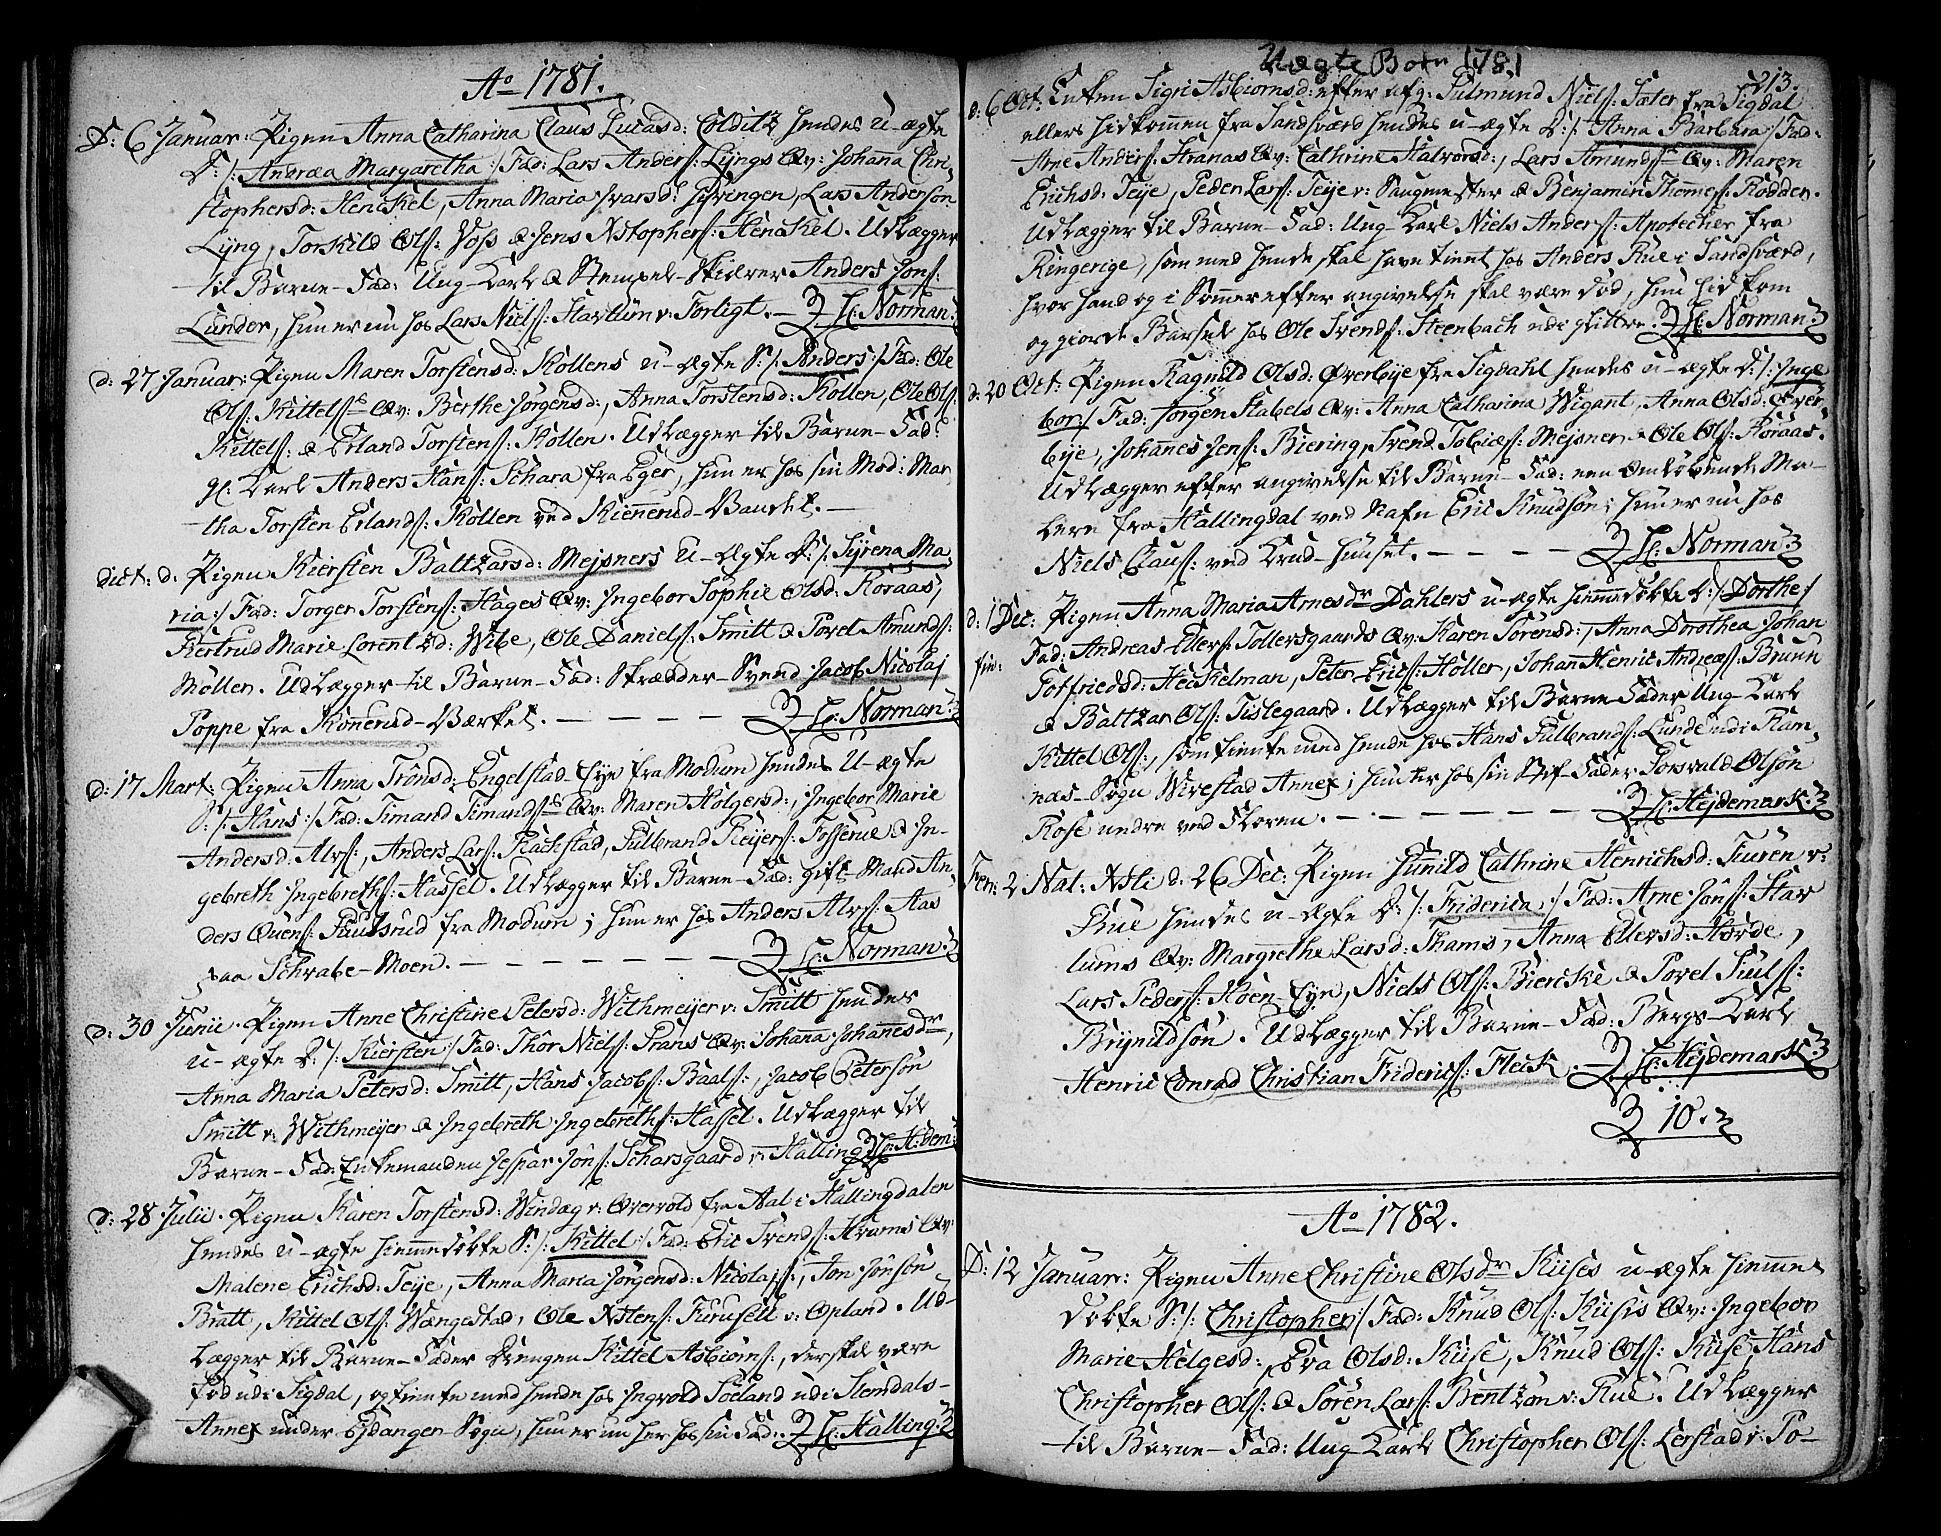 Ao 1781.
D: 6 Januar: Pigen Anna Catharina Claus Lucasd: Colditz hendes u-ægte
D: /: Andræa Margaretha :/ Fad: Lars Anders: Lyngs Qv: Johana Chri-
stophersd: Henckel, Anna Maria Ivarsd: Gisvingen, Lars Anderson
Lyng, Torkild Ols: Voss & Jens Xstophers: Henckel. Udlægger
til Barne-Fad: Ung-Karl & Stempel-Skiærer Anders Jons:
Lunder, hun er nu hos Lars Niels: Hartlum v: Torligt. — H: Norman:
d: 27 Januar: Pigen Maren Torstensd: Kollens u-ægte S: /: Anders :/ Fad: Ole
Ols: Kittels: Qv: Berthe Jørgensd:, Anna Torstensd: Kollen, Ole Ols:
Kittels: & Erland Torstens: Kollen. Udlægger til Barne-Fad:
gl: Karl Anders Hans: Schara fra Eger, hun er hos sin Mod: Mar-
tha Torsten Erlands: Kollen ved Kiennerud-Vandet. —
dict: d: Pigen Kiersten Baltzarsd: Mejsners u-ægte D: /: Syrena Ma-
ria :/ Fad: Torger Torstens: Hages Qv: Ingebor Sophie Olsd: Koraas,
Gertrud Marie Lorentzd: Wibe, Ole Daniels: Smitt & Povel Amunds:
Møllen. Udlægger til Barne-Fad: Skrædder-Svend Jacob Nicolaj
Poppe fra Konerud-Værket. — — — — H: Norman:
d: 17 Mart: Pigen Anna Tronsd: Engelstad-Eye fra Modum hendes u-ægte
S: /: Hans :/ Fad: Simand Simands: Qv: Maren Holgersd:, Ingebor Marie
Andersd: Alvs:, Anders Lars: Flachstad, Gulbrand Reijers: Fosserue & In-
gebreth Ingebreths: Hassel. Udlægger til Barne-Fad: gift-Mand An-
ders Ovens: Ruudsrud fra Modum; hun er hos Anders Alvs: Aas
paa Schrabe-Moen. — — — — — — H: Norman:
d: 30 Junii. Pigen Anne Christine Petersd: Withmeijer v: Smitt hendes
u-ægte D: /: Kiersten :/ Fad: Thor Niels: Prans Qv: Johana Johanesdr,
Anna Maria Petersd: Smitt, Hans Jacobs: Baals:, Jacob Peterson
Smitt v: Withmeijer & Ingebreth Ingebreths: Hassel. Udlægger til
Barne-Fad: Enkemanden Jespar Jons: Scharsgaard v: Halling H: Hdem:
d: 28 Julii. Pigen Karen Torstensd: Windæg v: Overvold fra Aal i Hallingdalen
hendes u-ægte hiemmedøbte S: /: Kittel :/ Fad: Eric Svends: Krams Qv:
Malene Erichsd: Teije, Anna Maria Jørgensd: Nicolajs:, Jon Jonson
Bratt, Kittel Ols: Wængestad, Ole Xstens: Furusett v: Opland. Ud-
lægger til Barne-Fader Drengen Kittel Asbiorns:, der skal være
fød udi Sigdal, og tiente med hende hos Ingvold Søeland udi Hemdals-
Annex under Gydanger-Sogn, hun er nu her hos sin Fad: H: Halling:
Uægte Børn 1781
213.
d: 6 Oct: Enken Sigri Asbiornsd: efter afg: Gulmund Niels: Sæter fra Sigdal
ellers hidkommen fra Sandsværd hendes u-ægte D: /: Anna Barbara :/ Fad:
Arne Anders: Stranas Qv: Cathrine Halvorsd:, Lars Amunds: Qv: Maren
Erichsd: Teije, Peder Lars: Teije v: Saugmester & Benjamin Thommes: Kodden.
Udlægger til Barne-Fad: Ung-Karl Niels Anders: Apotecher fra
Ringerige, som med hende skal have tient hos Anders Rue i Sandsværd,
hvor hand og i Sommer efter angivelse skal være død, hun hid kom
og giorde Barsel hos Ole Svends: Steenbach udi glitten. H: Norman:
d: 20 Oct: Pigen Ragnild Olsd: Øverbye fra Sigdahl hendes u-ægte D: /: Inge-
bor :/ Fad: Jørgen Stabels Qv: Anna Catharina Wigant, Anna Olsd: Øver-
bye, Johannes Jens: Biering, Svend Tobies: Mejsner & Ole Ols: Koraas.
Udlægger efter angivelse til Barne-Fad: een omløbende Ma-
lere fra Hallingdal ved Nafn Eric Knudson; hun er nu hos
Niels Claus: ved Krud-Huuset. — — — — H: Norman:
d: 1 Dec: Pigen Anna Maria Arnesdr Dahlers u-ægte hiemmedøbte D: /: Dorthe :/
Fad: Andreas Ellevs: Tollersgaards Qv: Karen Sørensd:, Anna Dorothea Johan
Gotfriedsd: Heckelman, Peter Erics: Holler, Johan Henric Andreæs: Bruun
& Baltzar Ols: Tislegaard. Udlægger til Barne-Fader Ung-Karl
Kittel Ols:, som tiente med hende hos Hans Gulbrands: Lunde udi Ram-
næs-Sogn Wivestad Annex; hun er hos sin Stif-Fader Torsvald Olson
Rose nedre ved Floren. — — — — H: Hejdemark:
Fer: 2 Nat: Xsti d: 26 Dec: Pigen Gunild Cathrine Henrichsd: Furen v:
Rue hendes u-ægte D: /: Friderica :/ Fad: Arne Jons: Har-
lums Qv: Margrethe Larsd: Thams, Anna Ellevsd: Hørde,
Lars Peders: Hoen-Eye, Niels Ols: Biercke & Povel Juuls:
Brynildson. Udlægger til Barne-Fad: Bergs-Karl
Henric Conrad Christian Friderics: Fleck. H: Hejdemark:
10.
Ao 1782.
D: 12 Januar: Pigen Anne Christine Olsdr Kuses u-ægte hiemme-
døbte S: /: Christopher :/ Fad: Knud Ols: Kuses Qv: Ingebor
Marie Helgesd:, Eva Olsd: Kuse, Knud Ols: Kuse, Hans
Christopher Ols: & Søren Lars: Bentzon v: Rue. Udlægger
til Barne-Fad: Ung-Karl Christopher Ols: Lerstad v: Po-